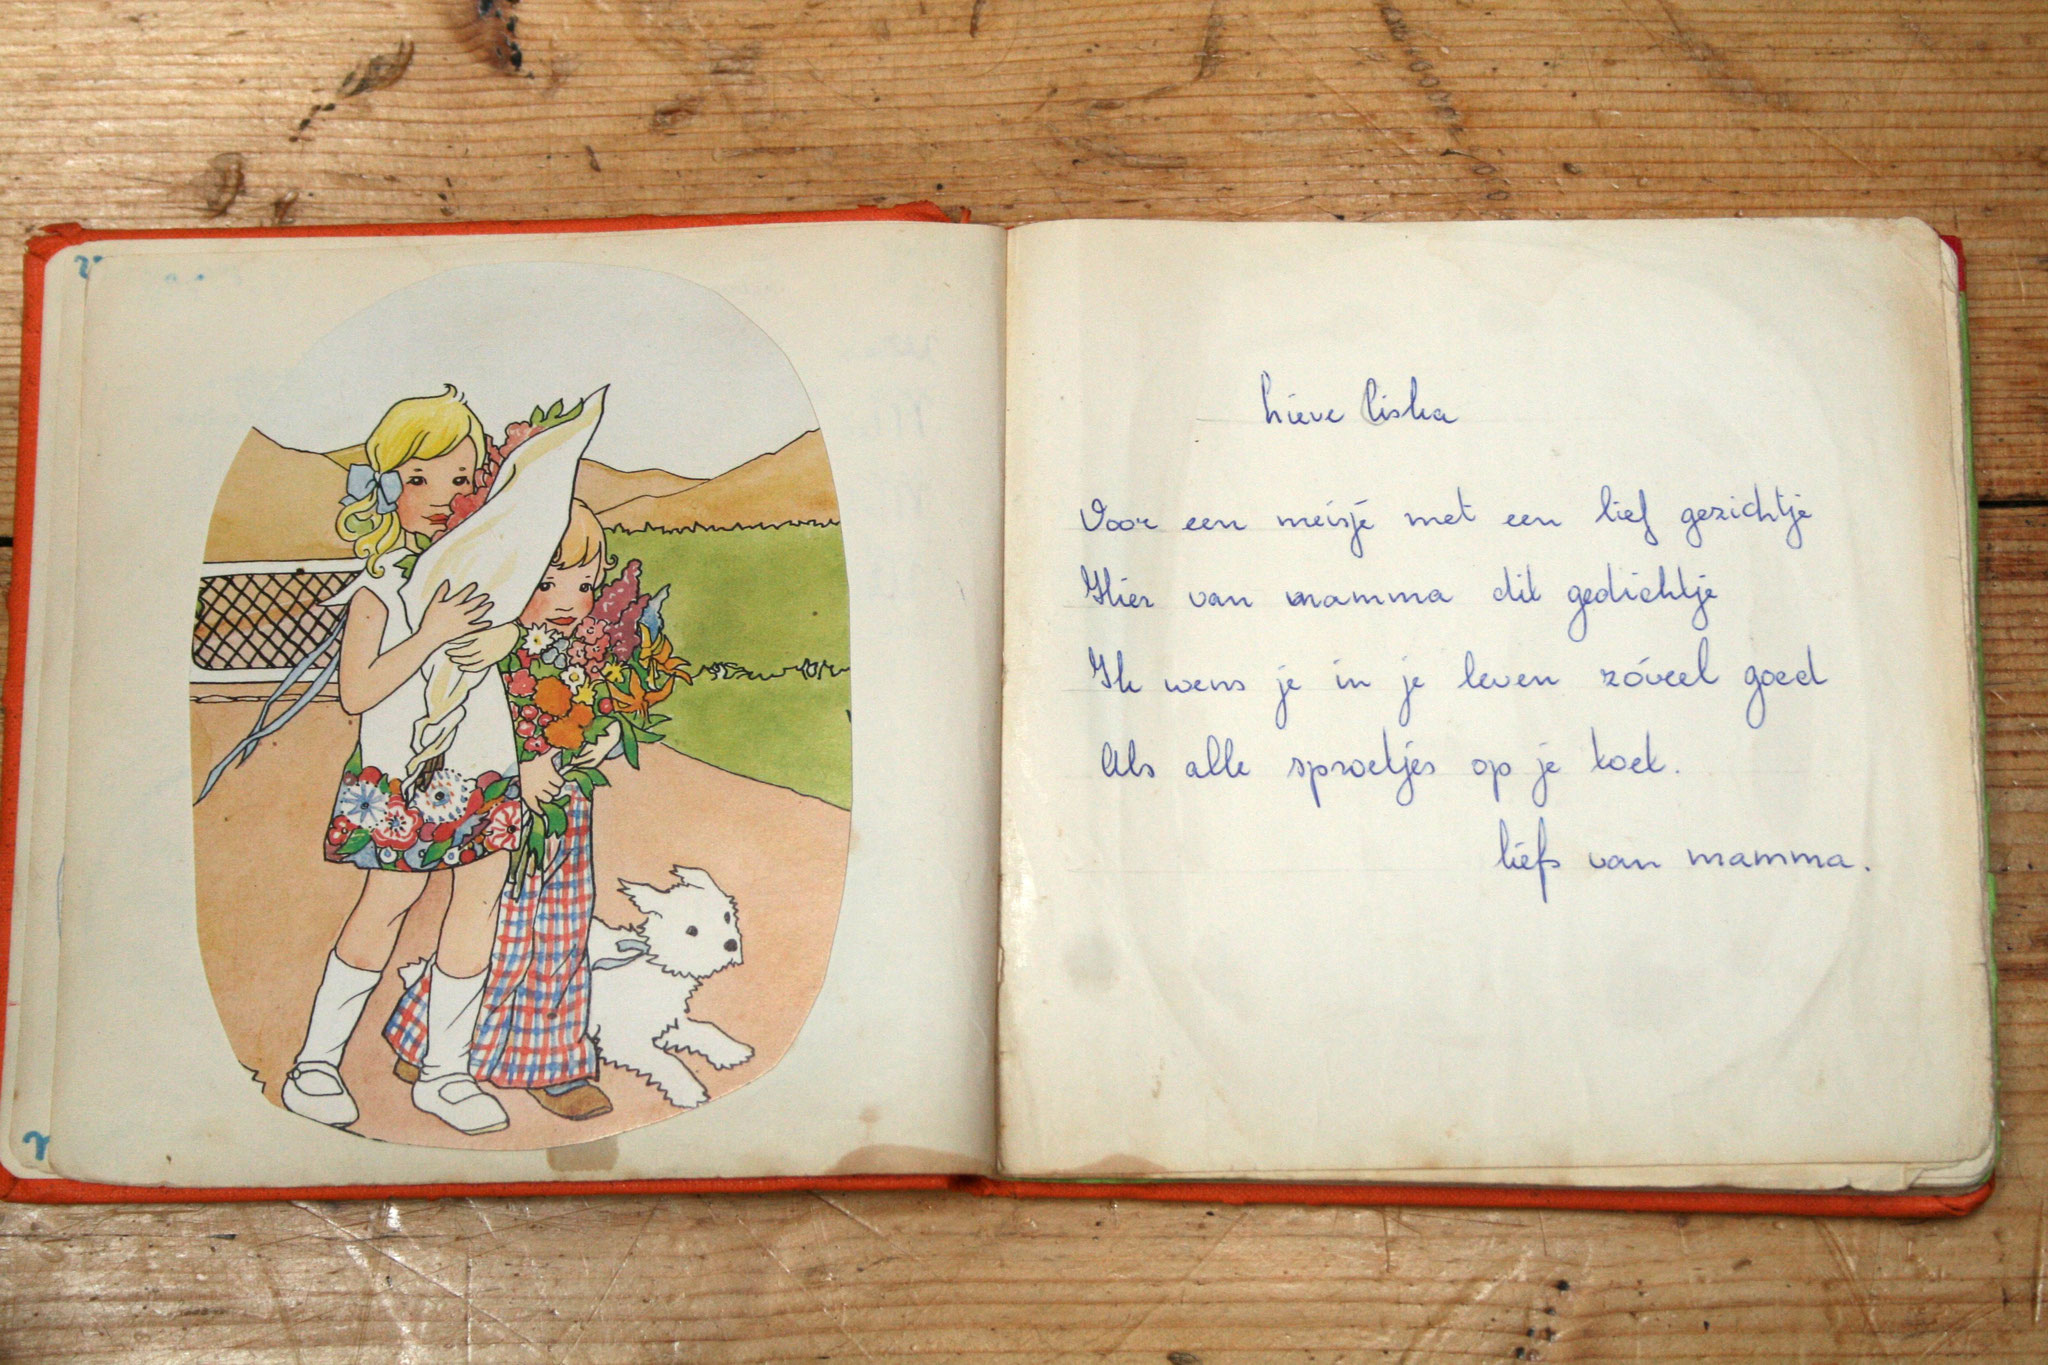 Lieve Liska
Voor een meisje met een lief gezichtje
Hier van mamma dit gedichtje
Ik wens je in je leven zóveel goed
Als alle sproetjes op je toet.
liefs van mamma.